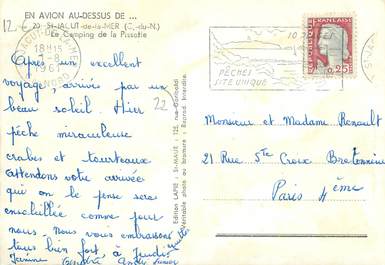 EN AVION AU-DESSUS DE ...
12 €
20 - St-JACUT-de-la-MER (C.-du-N.)
Le Camping de la Pissotte
18H15
1961
PÊCHES
SITE UNIQUE
REPUBLIQUE FRANCAISE
0,25
Après un excellent
voyage, arrivée par un
beau soleil. Hier
pêche miraculeuse
crabes et tourteaux
attendons votre arrivée
qui on le pense sera
ensoleillée comme pour
nous. Nous vous embrassons
tous bien fort à Jeudi
Janine André
22
Edition LAPIE - St-MAUR - 125, rue Garibaldi
Véritable photo au bromure - Reprod. interdite
Monsieur et Madame Renault
21 Rue Ste Croix Bretonnerie
Paris 4ème